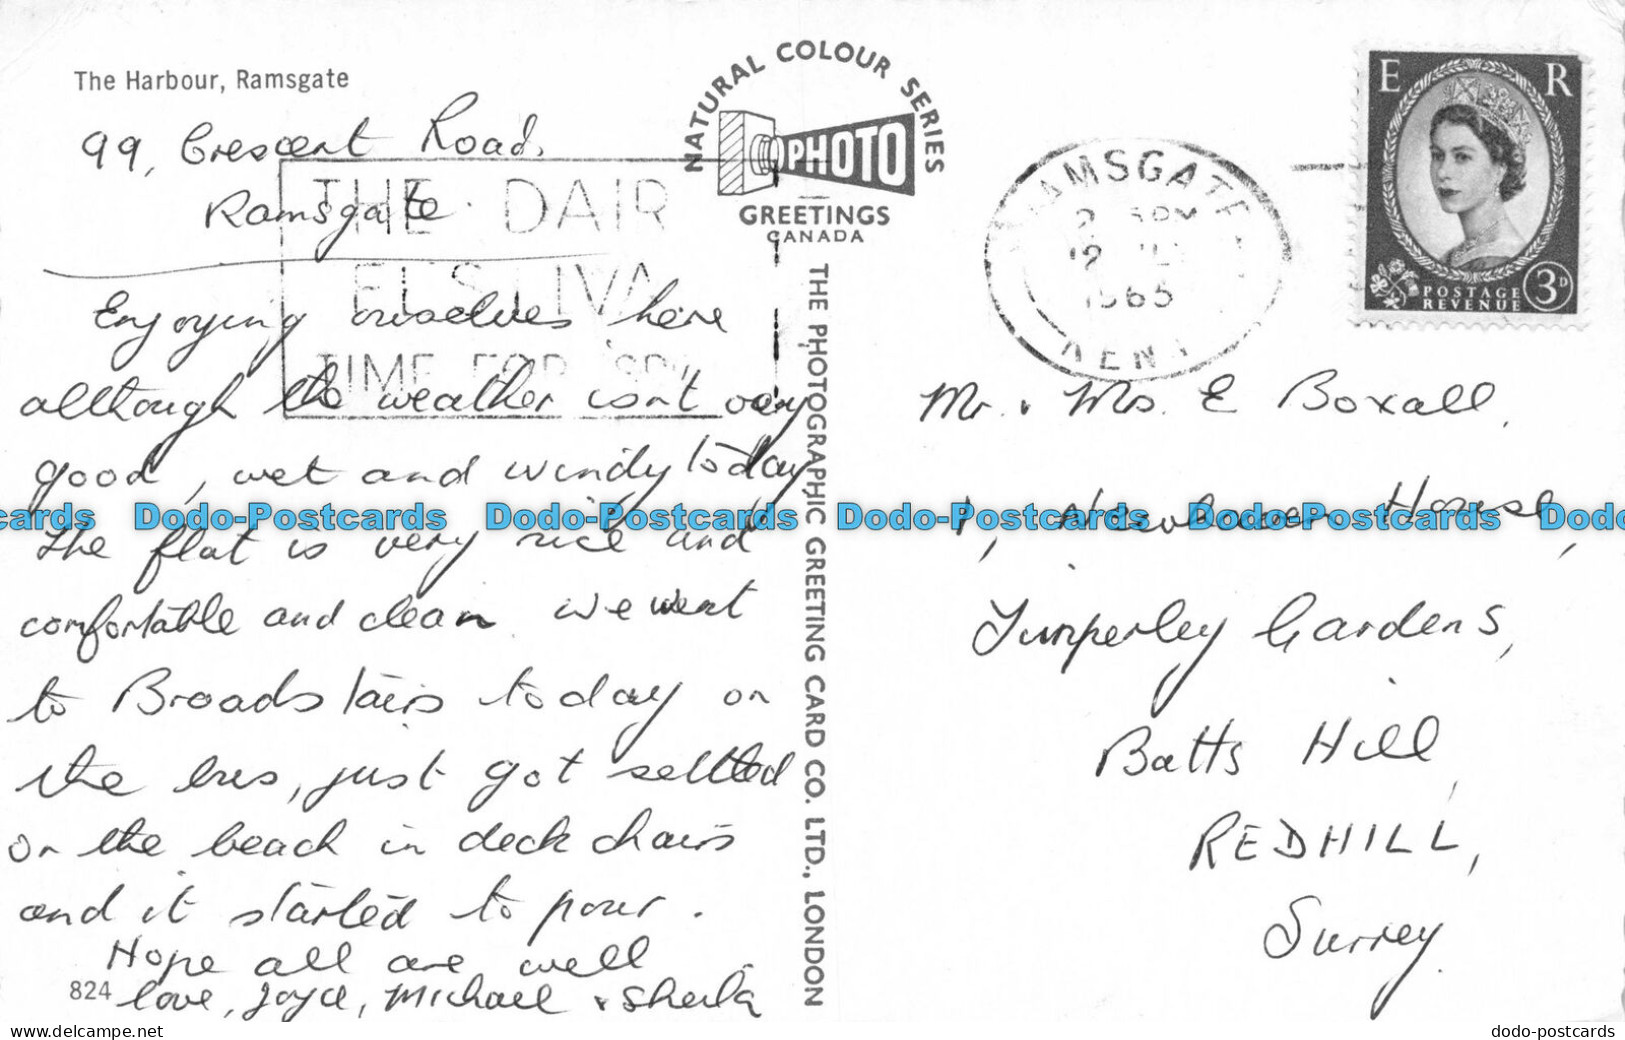 The Harbour, Ramsgate
99, Crescent Road,
Ramsgate.
Enjoying ourselves here
although the weather isn't very
good, wet and windy today
the flat is very nice and
comfortable and clean. We went
to Broadstairs today on
the bus, just got settled
on the beach in deck chairs
and it started to pour.
Hope all are well
love, Joyce, Michael & Sheila
824
NATURAL COLOUR SERIES
PHOTO
GREETINGS
CANADA
THE PHOTOGRAPHIC GREETING CARD CO. LTD., LONDON
THE DAIR
FESTIVA
TIME FOR
RAMSGATE
1965
KENT
E R
POSTAGE
REVENUE
3D
Mr. & Mrs. E Boxall,
1, House,
Timperley Gardens,
Batts Hill,
REDHILL,
Surrey.
cards Dodo-Postcards Dodo-Postcards Dodo-Postcards Dodo-Postcards Dodo
www.delcampe.net
dodo-postcards